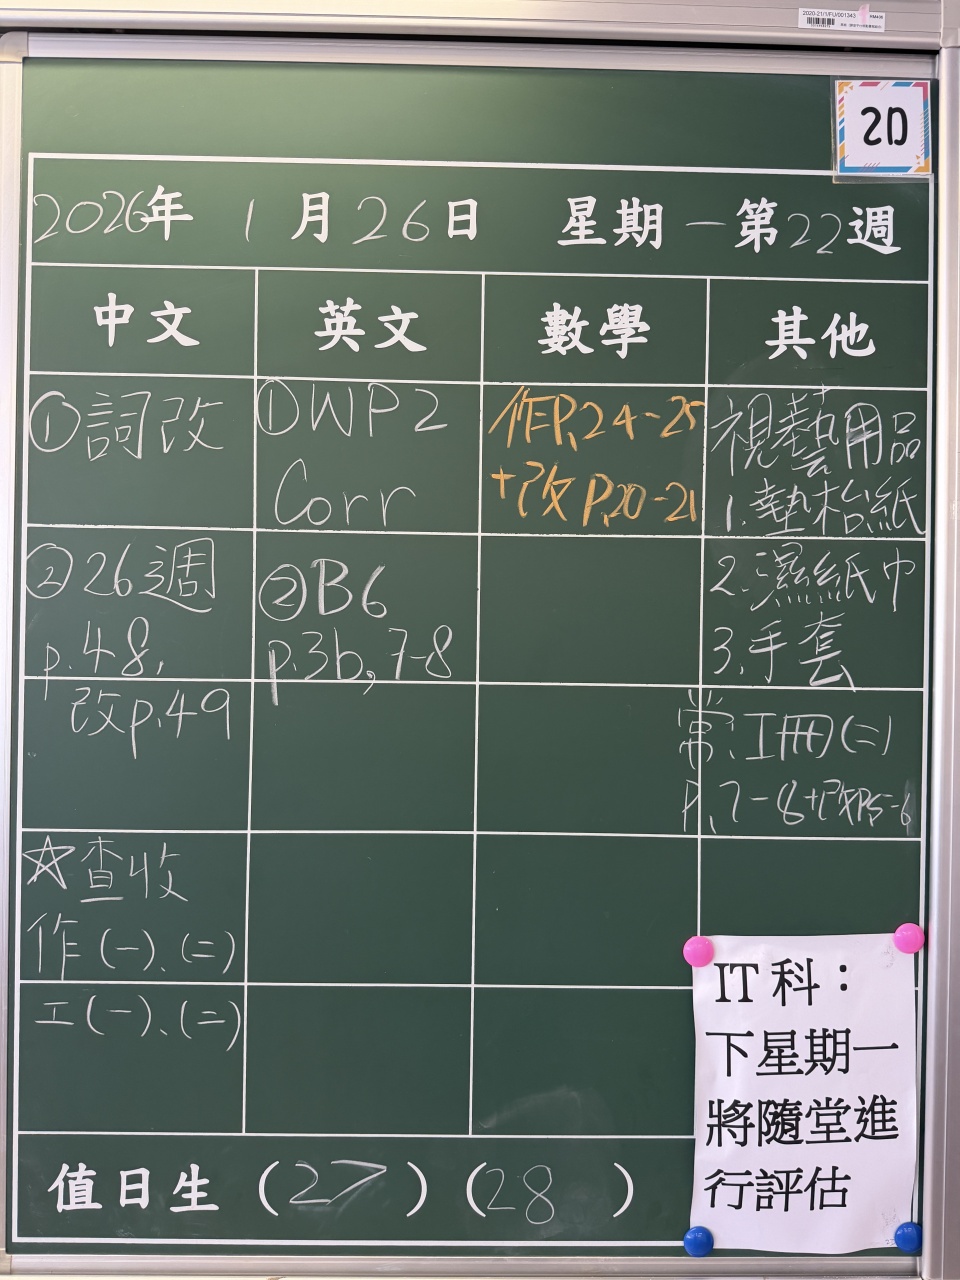 2020-21/1/FU/001343
RM436
2D
2026年 1月26日 星期一第22週
中文
英文
數學
其他
①詞改
②26週
p.48,
改p.49
☆查收
作(一)、(二)
工(一)、(二)
①WP2
Corr
②B6
p.3b, 7-8
作P.24-25
+改P.20-21
視藝用品
1.墊枱紙
2.濕紙巾
3.手套
常.工冊(二)
P.7-8+改P.5-6
IT科：
下星期一
將隨堂進
行評估
值日生（27）（28）